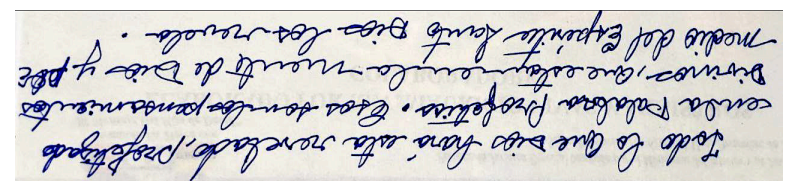 Todo lo que Dios hará esta revelado, profetizado
en la Palabra Profetica. Esos son los pensamientos
Divinos, que están en la mente de Dios y por
medio del Espíritu Santo Dios los revela.